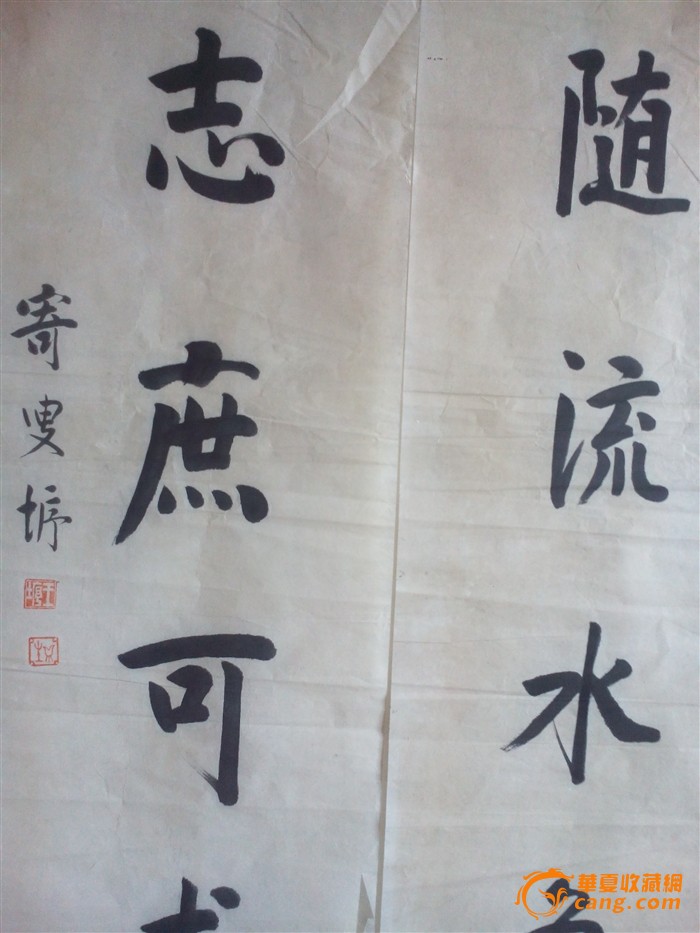 随流水
志庶可
寄叟垿
華夏收藏網
cang.com